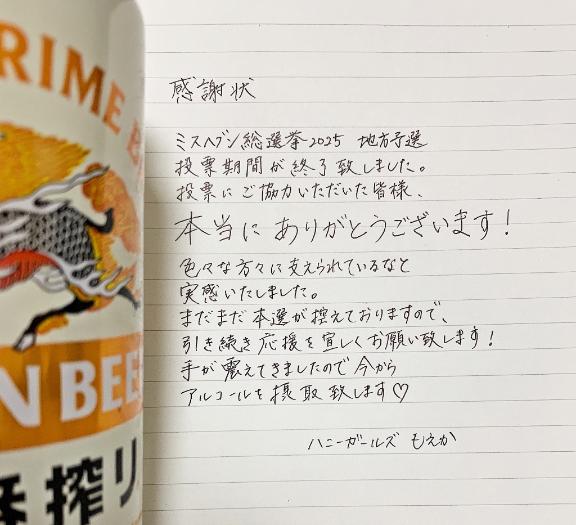 PRIME
N BEE
搾り
感謝状
ミスヘブン総選挙2025 地方予選
投票期間が終了致しました。
投票にご協力いただいた皆様、
本当にありがとうございます!
色々な方々に支えられているなと
実感いたしました。
まだまだ本選が控えておりますので、
引き続き応援を宜しくお願い致します!
手が震えてきましたので今から
アルコールを摂取致します♡
ハニーガールズ もえか